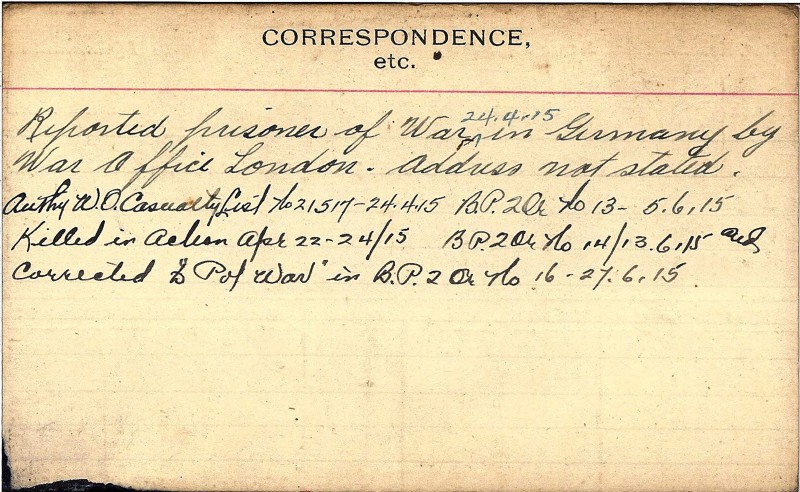 CORRESPONDENCE,
etc.
24.4.15
Reported prisoner of War in Germany by
War Office London. Address not stated.
Authy W.O. Casualty List No 21517-24.4.15 B.P. 2 Or No 13- 5.6.15
Killed in Action Apr 22-24/15 B P. 2 Or No 14/13.6.15 and
Corrected to "P of War" in B.P. 2 Or No 16-27.6.15